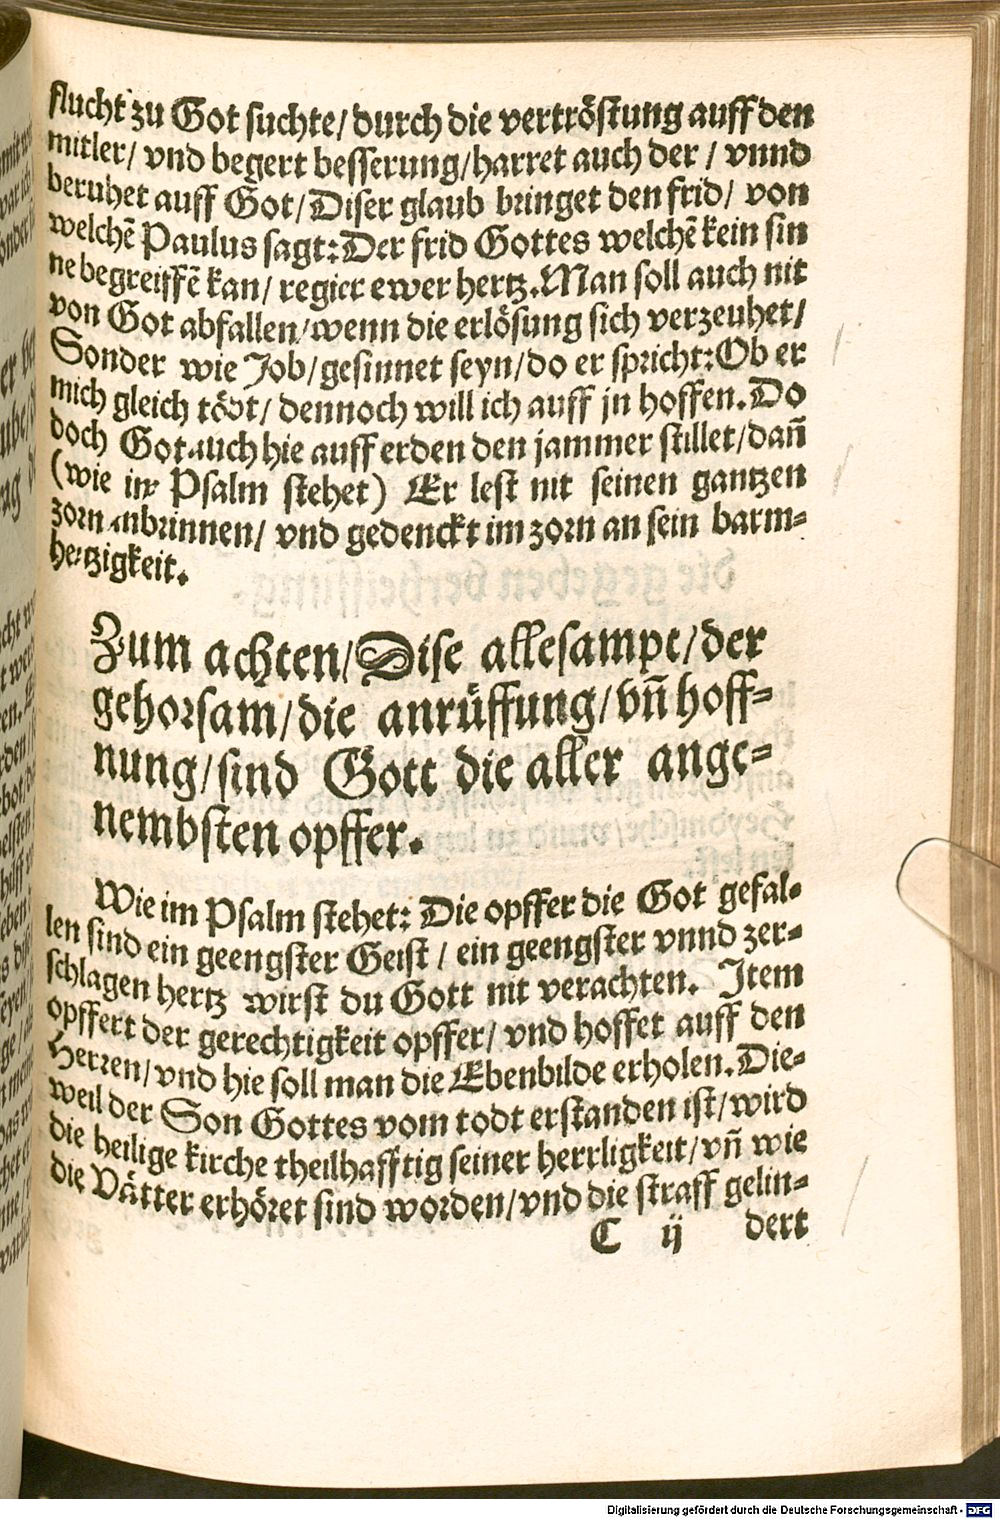 flucht zu Got suchte/ durch die vertröstung auff den
mitler/ vnd begert besserung/ harret auch der / vnnd
beruhet auff Got/ Diser glaub bringet den frid/ von
welchē Paulus sagt: Der frid Gottes welchē kein sin
ne begreiffē kan/ regier ewer hertz. Man soll auch nit
von Got abfallen/ wenn die erlösung sich verzeuhet/
Sonder wie Job/ gesinnet seyn/ do er spricht: Ob er
mich gleich tödt/ dennoch will ich auff jn hoffen. Do
doch Got auch hie auff erden den jammer stillet/ dañ
(wie im Psalm stehet) Er lest nit seinen gantzen
zorn anbrinnen/ vnd gedenckt im zorn an sein barm-
hertzigkeit.
Zum achten/ Dise allesampt/ der
gehorsam/ die anrüffung/ vñ hoff-
nung/ sind Gott die aller ange-
nembsten opffer.
Wie im Psalm stehet: Die opffer die Got gefal-
len sind ein geengster Geist / ein geengster vnnd zer-
schlagen hertz wirst du Gott nit verachten. Item
opffert der gerechtigkeit opffer/ vnd hoffet auff den
Herren/ vnd hie soll man die Ebenbilde erholen. Die-
weil der Son Gottes vom todt erstanden ist/ wird
die heilige kirche theilhafftig seiner herrligkeit/ vñ wie
die Vätter erhöret sind worden/ vnd die straff gelin-
C ij dert
Digitalisierung gefördert durch die Deutsche Forschungsgemeinschaft - DFG